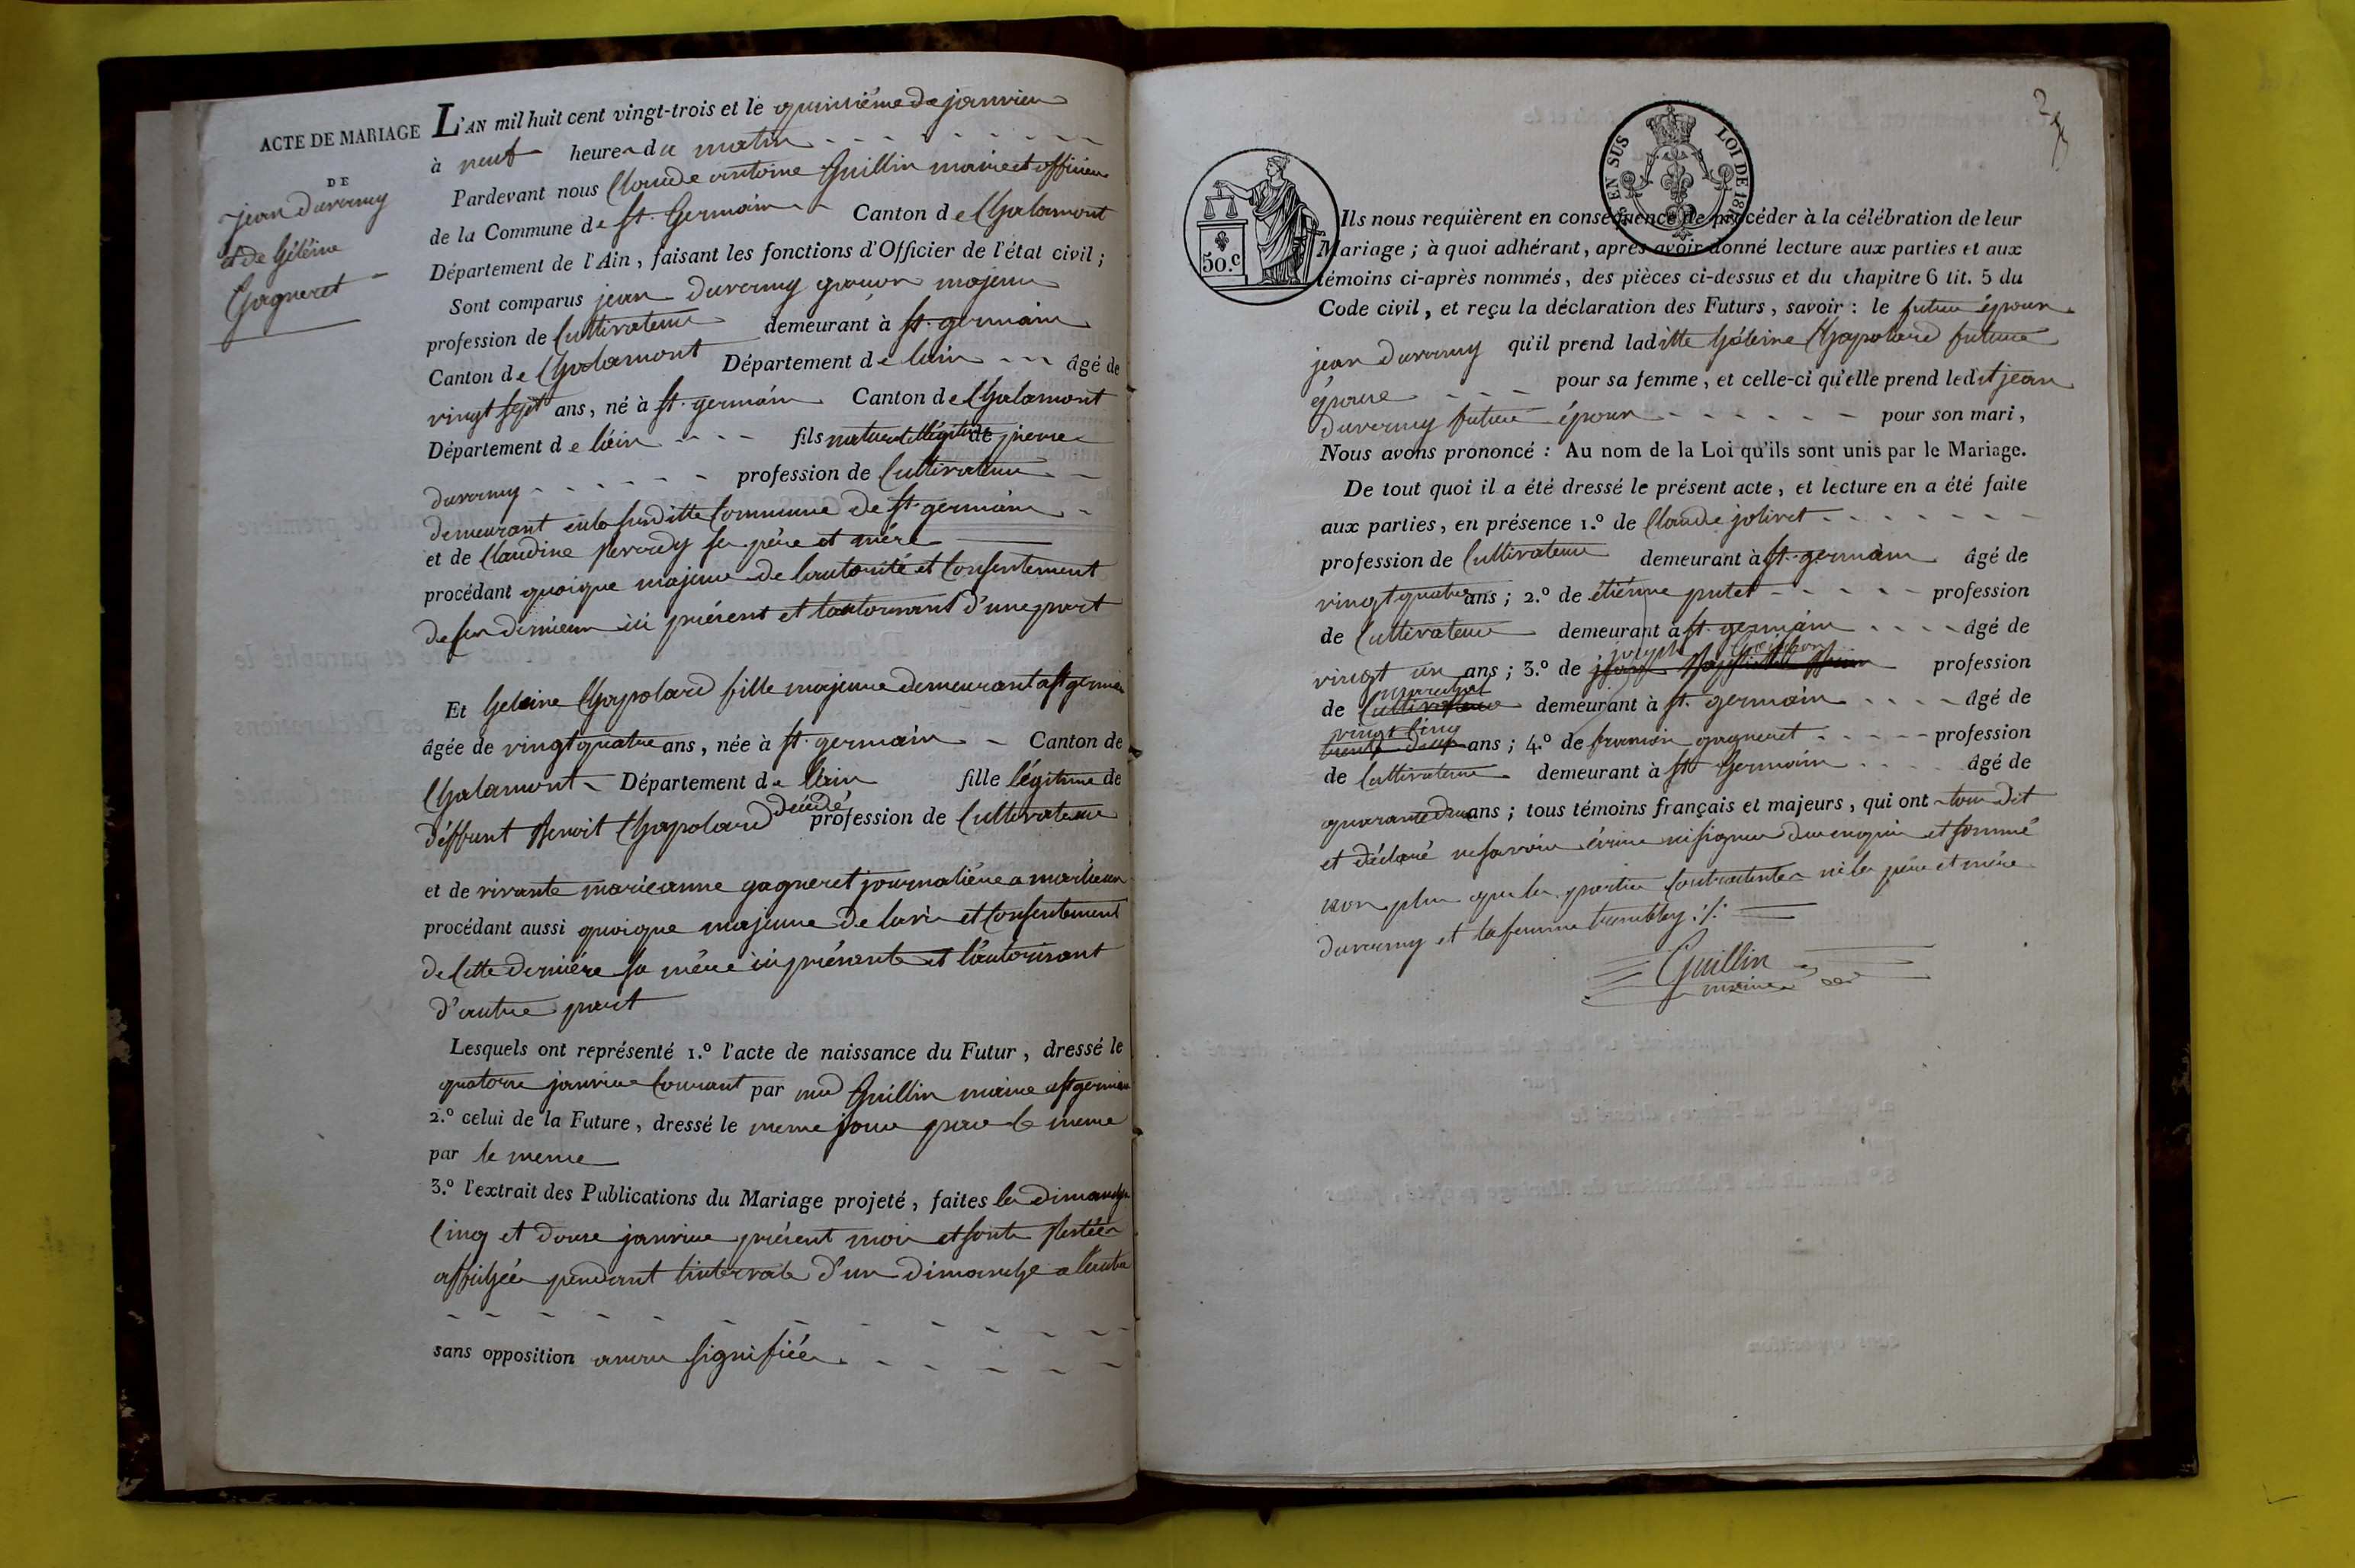 ACTE DE MARIAGE
DE
jean duvernay
et de héléine
Gagneret
L'AN mil huit cent vingt-trois et le quinzième de janvier
à neuf heures du matin
Pardevant nous Claude antoine Guillin maire et officier
de la Commune de st. Germain Canton de Chalamont
Département de l'Ain, faisant les fonctions d'Officier de l'état civil;
Sont comparus jean duvernay garçon majeur
profession de Cultivateur demeurant à st. germain
Canton de Chalamont Département de lain âgé de
vingt sept ans, né à st. germain Canton de Chalamont
Département de lain fils naturel et légitime de pierre
duvernay profession de Cultivateur
demeurant en la susditte Commune de st. germain
et de Claudine ses père et mère
procédant quoique majeur de lautorité et Consentement
de ses derniers ici présents et lautorisant d'une part
Et heleine Chapolard fille majeure demeurant a st germain
âgée de vingt quatre ans, née à st. germain Canton de
Chalamont Département de lain fille légitime de
déffunt Benoit Chapolard décédé profession de Cultivateur
et de vivante marieanne gagneret journalière a marlieux
procédant aussi quoique majeure de lavis et Consentement
de Cette dernière sa mère ici présente et l'autorisant
d'autre part
Lesquels ont représenté 1.º l'acte de naissance du Futur, dressé le
quatorze janvier Courant par Guillin maire a st germain
2.º celui de la Future, dressé le meme jour par le meme
par le meme
3.º l'extrait des Publications du Mariage projeté, faites les dimanches
Cinq et douze janvier présent mois et sont Restées
affichées pendant lintervale d'un dimanche a lautre
sans opposition signifiée
50.c
EN SUS
LOI DE
Ils nous requièrent en conséquence de procéder à la célébration de leur
Mariage; à quoi adhérant, après avoir donné lecture aux parties et aux
témoins ci-après nommés, des pièces ci-dessus et du chapitre 6 tit. 5 du
Code civil, et reçu la déclaration des Futurs, savoir: le futur époux
jean duvernay qu'il prend laditte héleine Chapolard future
épouse pour sa femme, et celle-ci qu'elle prend ledit jean
duvernay futur époux pour son mari,
Nous avons prononcé: Au nom de la Loi qu'ils sont unis par le Mariage.
De tout quoi il a été dressé le présent acte, et lecture en a été faite
aux parties, en présence 1.º de Claude jolivet
profession de Cultivateur demeurant à st. germain âgé de
vingt quatre ans; 2.º de étiénne putet profession
de Cultivateur demeurant à st. germain âgé de
joseph
vingt un ans; 3.º de profession
marechal
de Cultivateur demeurant à st. germain âgé de
vingt Cinq
trente deux ans; 4.º de francois gagneret profession
de Cultivateur demeurant à st Germain âgé de
quarante deux ans; tous témoins français et majeurs, qui ont tous dit
et déclaré ne savoir écrire ni signer de ce enquis et sommé
non plus que les parties Contractantes ni les père et mère
duvernay et la femme
Guillin
maire